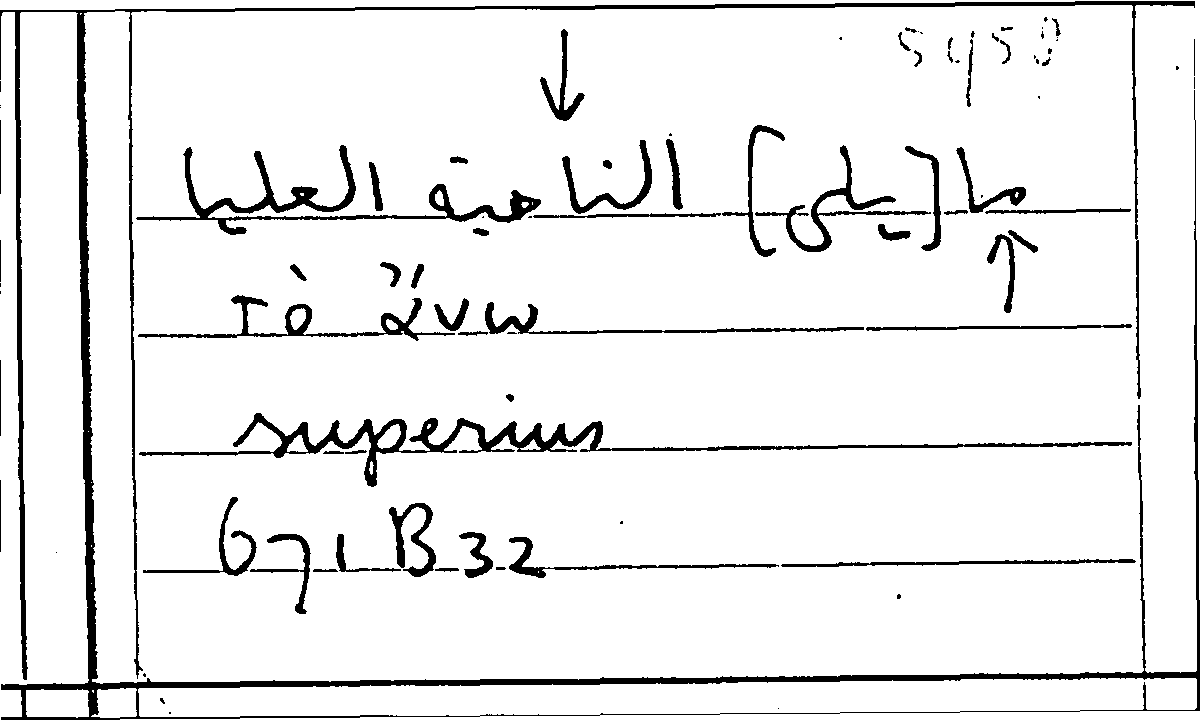 5458
ما [يلي] الناحية العليا
τὸ ἄνω
superius
671 B 32